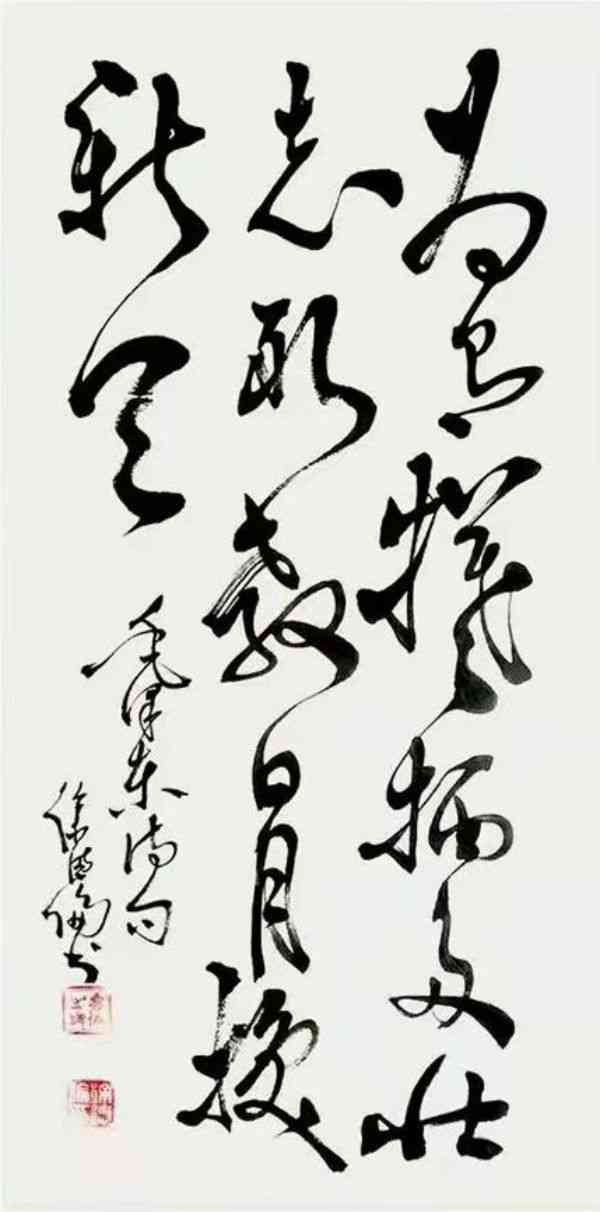 为有犧牲多壮
志敢教日月换
新天
毛泽东诗句
徐 书